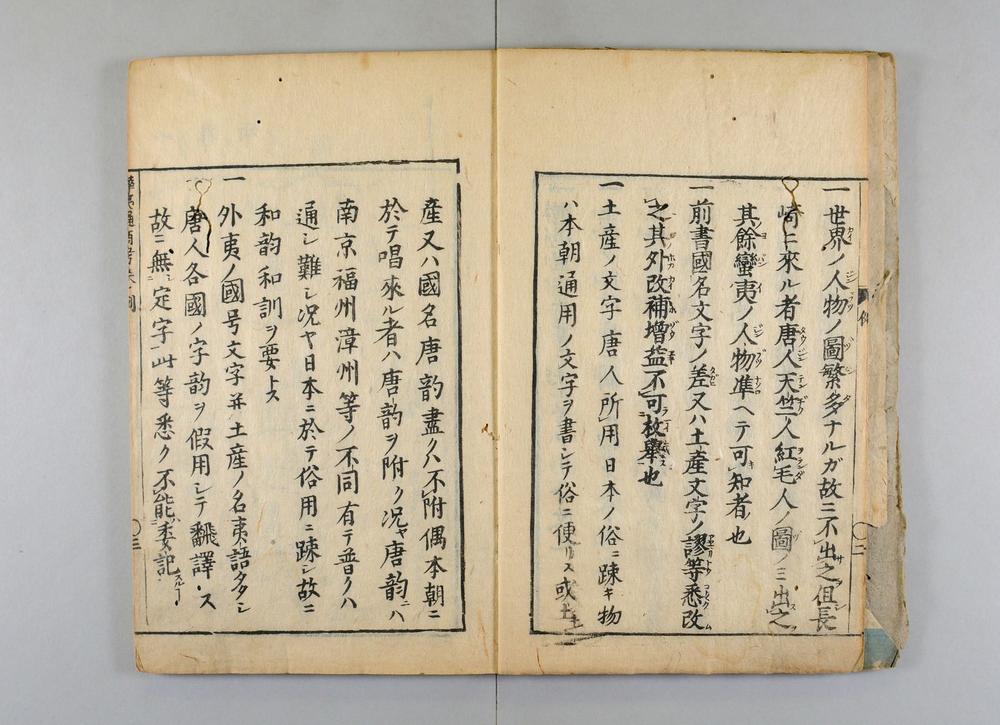 一世界ノ人物ノ圖繁多ナルガ故ニ不出之但長
崎ニ來ル者唐人天竺人紅毛人ノ圖ノミ出之
其餘蠻夷ノ人物準ヘテ可知者也
一前書國名文字ノ差又ハ土產文字ノ謬等悉改
之其外改補增益不可枚舉也
一土產ノ文字唐人所用日本ノ俗ニ踈キ物
ハ本朝通用ノ文字ヲ書シテ俗ニ便リス或土
產又ハ國名唐韵盡クハ不附偶本朝ニ
於テ唱來ル者ハ唐韵ヲ附ク况ヤ唐韵ニハ
南京福州漳州等ノ不同有テ普クハ
通シ難シ况ヤ日本ニ於テ俗用ニ踈シ故ニ
和韵和訓ヲ要トス
一外夷ノ國号文字幷土產ノ名夷語多シ
唐人各國ノ字韵ヲ假用シテ飜譯ス
故ニ無定字此等悉ク不能委記スル